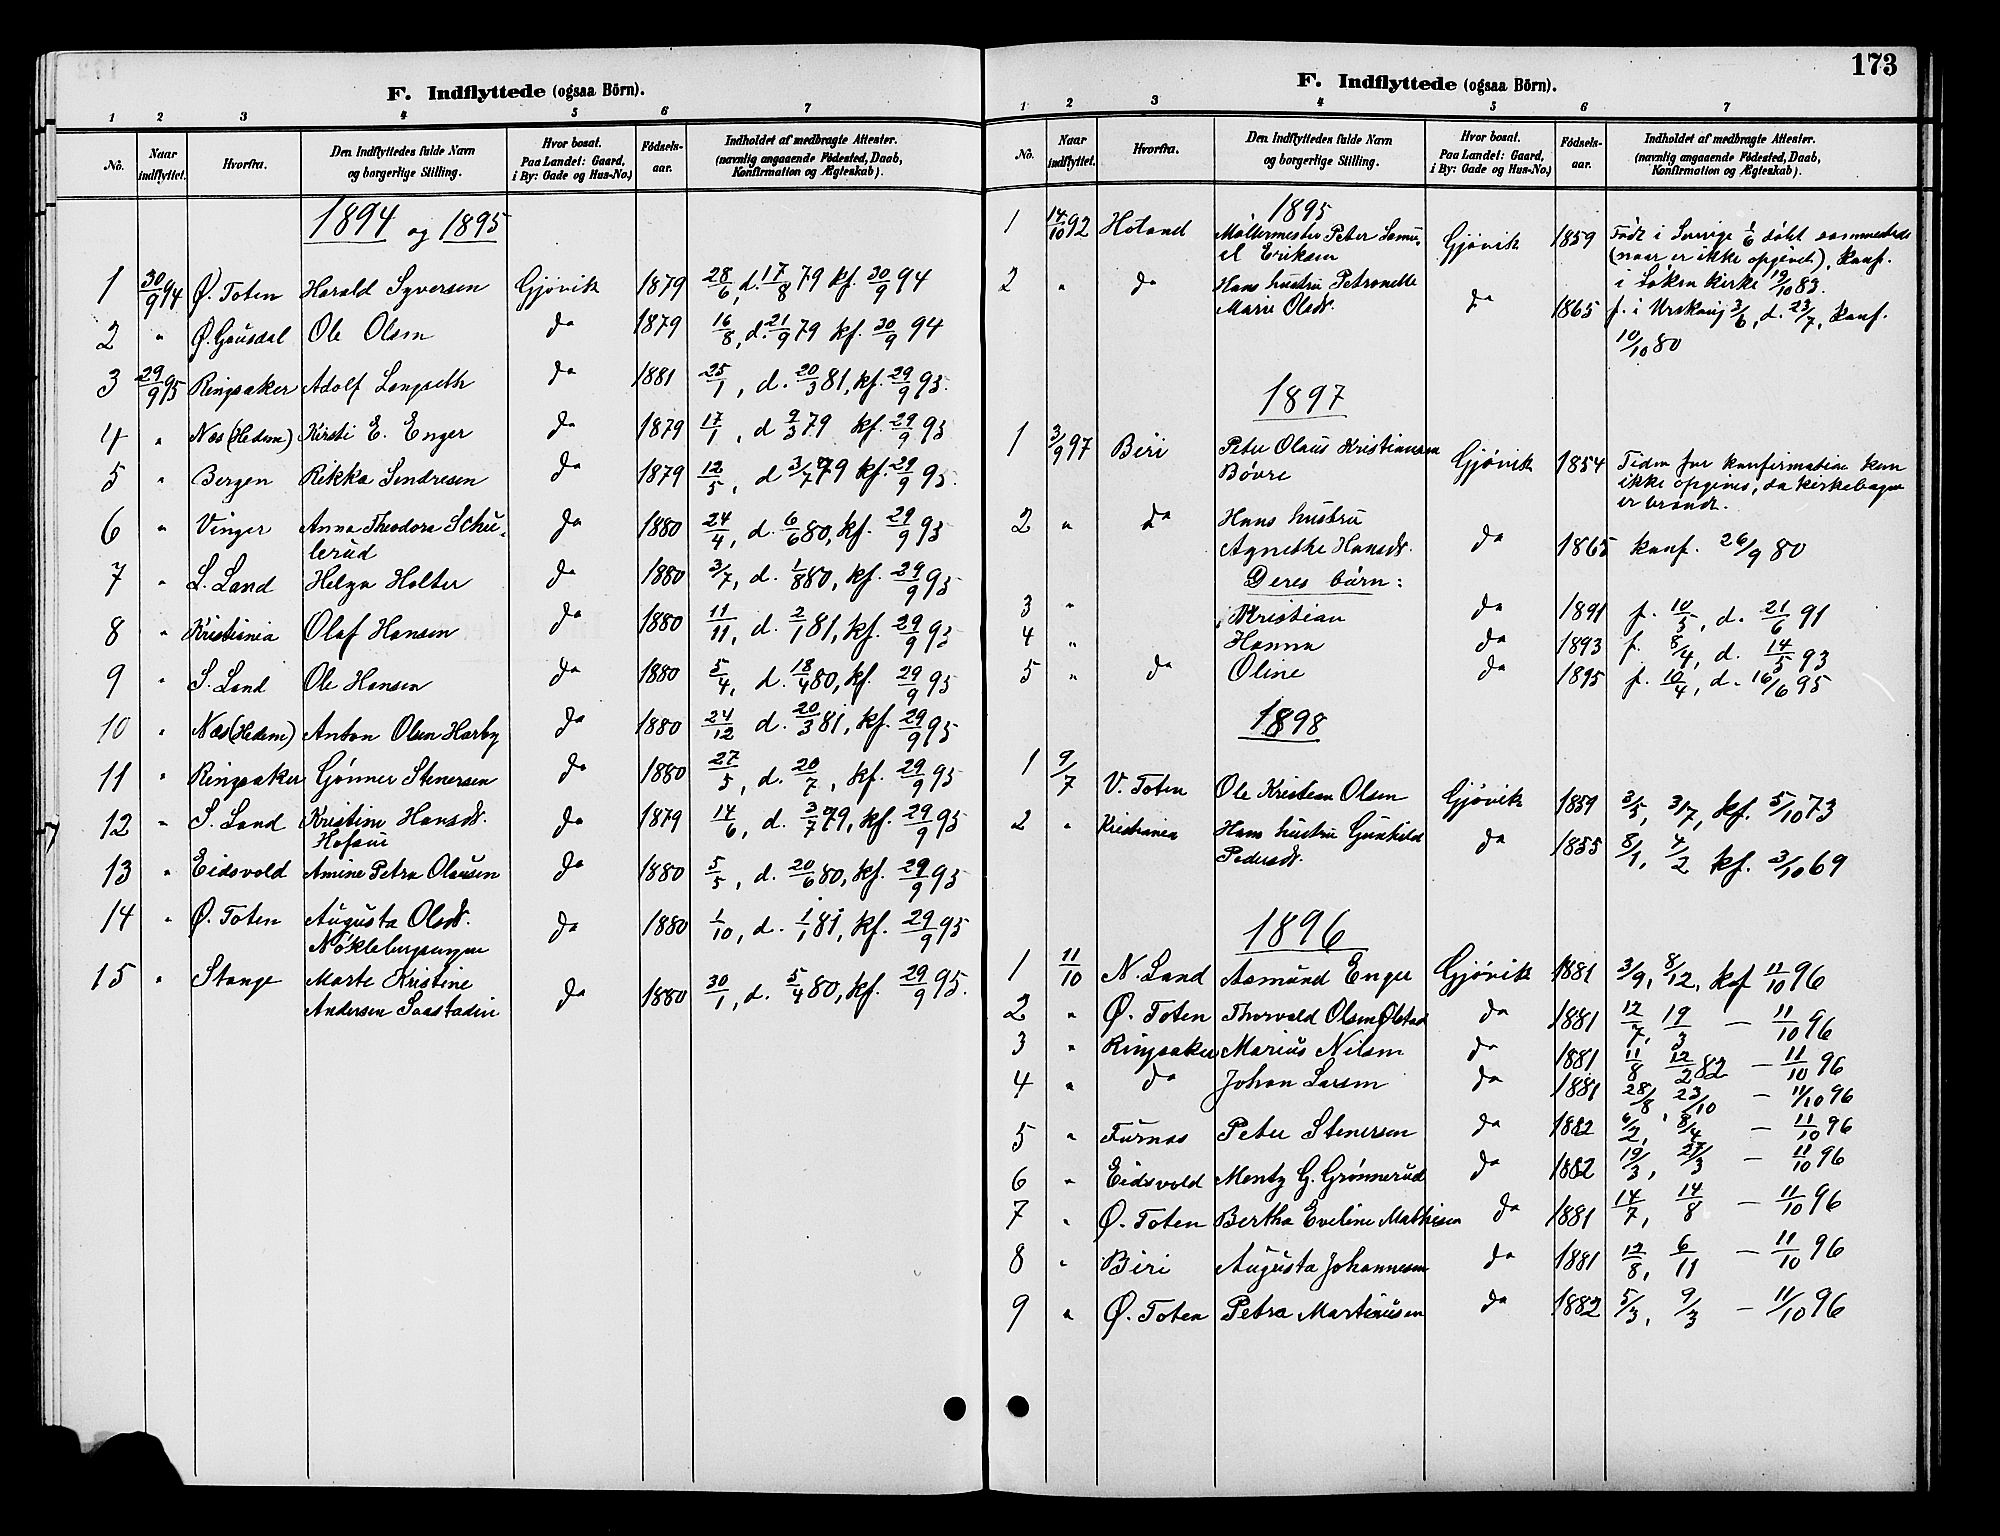 F. Indflyttede (ogsaa Börn).
1 2 3 4 5 6 7
No. Naar indflyttet. Hvorfra. Den Indflyttedes fulde Navn og borgerlige Stilling. Hvor bosat. Paa Landet: Gaard, i By: Gade og Hus-No.) Fødsels-aar. Indholdet af medbragte Attester. (navnlig angaaende Fødested, Daab, Konfirmation og Ægteskab).
1894 og 1895
1 30/9 94 Ø. Toten Harald Syversen Gjøvik 1879 28/6, d. 17/8 79 kf. 30/9 94
2 " Ø. Gausdal Ole Olsen do 1879 16/8, d. 21/9 79 kf. 30/9 94
3 29/9 95 Ringsaker Adolf Langseth do 1881 25/1, d. 20/3 81, kf. 29/9 95.
4 " Næs (Hedem) Kirsti E. Enger do 1879 17/1, d 9/3 79 kf. 29/9 95
5 " Bergen Rikka Sendresen do 1879 12/5, d 3/7 79 kf. 29/9 95.
6 " Vinger Anna Theodora Schu-
lerud do 1880 24/4, d. 6/6 80, kf. 29/9 95
7 " S. Land Helga Holter do 1880 3/7, d. 1/8 80, kf. 29/9 95
8 " Kristiania Olaf Hansen do 1880 11/11, d. 2/1 81, kf. 29/9 95
9 " S. Land Ole Hansen do 1880 5/4, d. 18/4 80, kf. 29/9 95
10 " Næs (Hedem) Anton Olsen Harby do 1880 24/12 d. 20/3 81, kf. 29/9 95
11 " Ringsaker Gønner Stenersen do 1880 27/5, d. 20/7, kf. 29/9 95
12 " S. Land Kristine Hansdt.
do 1879 14/6, d. 3/7 79, kf. 29/9 95
13 " Eidsvold Amine Petra Olausen do 1880 5/5, d. 20/6 80, kf. 29/9 95
14 " Ø. Toten Augusta Olsdt.
do 1880 1/10, d. 1/1 81, kf. 29/9 95
15 " Stange Marte Kristine
Andersen Saastadin do 1880 30/1, d. 5/4 80, kf. 29/9 95.
173
F. Indflyttede (ogsaa Börn).
1 2 3 4 5 6 7
No. Naar indflyttet. Hvorfra. Den Indflyttedes fulde Navn og borgerlige Stilling. Hvor bosat. Paa Landet: Gaard, i By: Gade og Hus-No.) Fødsels-aar. Indholdet af medbragte Attester. (navnlig angaaende Fødested, Daab, Konfirmation og Ægteskab).
1895
1 14/10 92 Høland Møllermester Peter Samu-
el Eriksen Gjøvik 1859 Født i Sverige 1/6 døbt sammesteds
(naar er ikke opgivet), Konf.
i Søken kirke 19/10 83.
2 " do Hans hustru Petronelle
Marie Olsdt. do 1865 f. i Urskoug 3/6, d. 23/7, Konf.
10/10 80
1897
1 3/9 97 Biri Peter Olaus Kristiansen
Bøvre Gjøvik 1854 Tiden for konfirmation kan
ikke opgives, da kirkebogen
er brændt.
2 " do Hans hustru
Agnethe Hansdt. do 1865 konf. 26/9 80
Deres børn:
3 " Kristian do 1891 f. 10/5, d. 21/6 91
4 " Hanna do 1893 f. 8/4, d. 14/5 93
5 " do Oline do 1895 f. 10/4, d. 16/6 95
1898
1 9/7 V. Toten Ole Kristian Olsen Gjøvik 1859 3/5, 3/7, kf. 5/10 73
2 " Kristiania Hans hustru Gunhild
Pedersdt. do 1855 8/1, 4/2 kf. 3/10 69
1896
1 11/10 N. Land Asmund Enger Gjøvik 1881 3/9, 8/12, kof 11/10 96
2 " Ø. Toten Thorvald Olsen Ølstad do 1881 12/7, 19/3 — 11/10 96
3 " Ringsaker Marius Nilsen do 1881 11/8 12/2 82 — 11/10 96
4 " do Johan Larsen do 1881 28/8, 23/10 — 11/10 96
5 " Furnæs Peter Stenersen do 1882 6/2, 8/4 — 11/10 96
6 " Eidsvold Mentz G. Grønnerud do 1882 19/3, 27/3 — 11/10 96
7 " Ø. Toten Bertha Eveline Mathisen do 1881 14/7, 14/8 — 11/10 96
8 " Biri Augusta Johannesen do 1881 12/8, 6/11 — 11/10 96
9 " Ø. Toten Petra Martinusen do 1882 5/3, 9/3 — 11/10 96